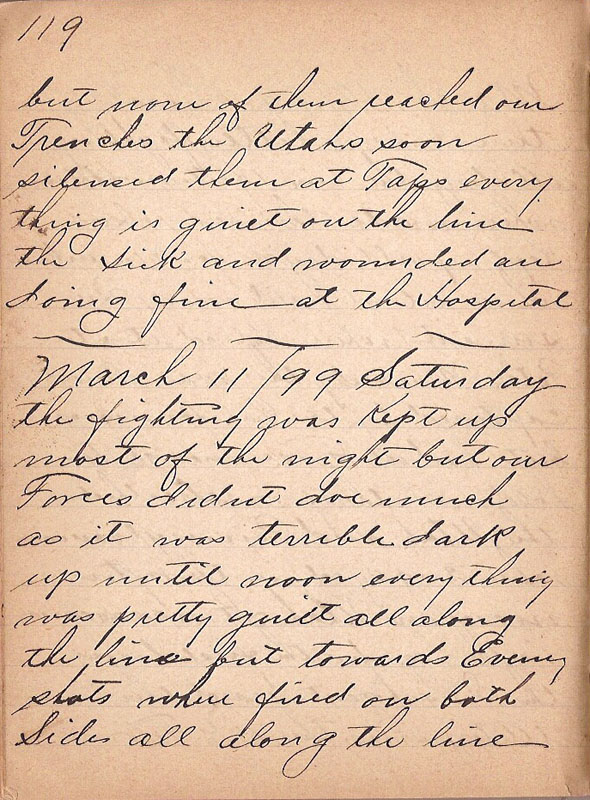 119
but none of them reached our
Trenches the Utahs soon
silensed them at Taps every
thing is quiet on the line
the sick and wounded are
doing fine at the Hospital
March 11/99 Saturday
the fighting was Kept up
most of the night but our
Forces didnt doe much
as it was terrible dark
up until noon every thing
was pretty quiet all along
the line but towards Evening
shots where fired on both
Sides all along the line